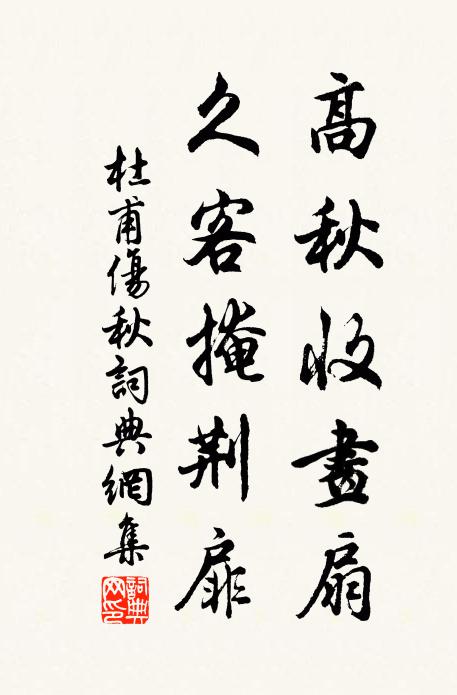 高秋收畫扇
久客掩荆扉
杜甫傷秋詞典網集
詞典网印